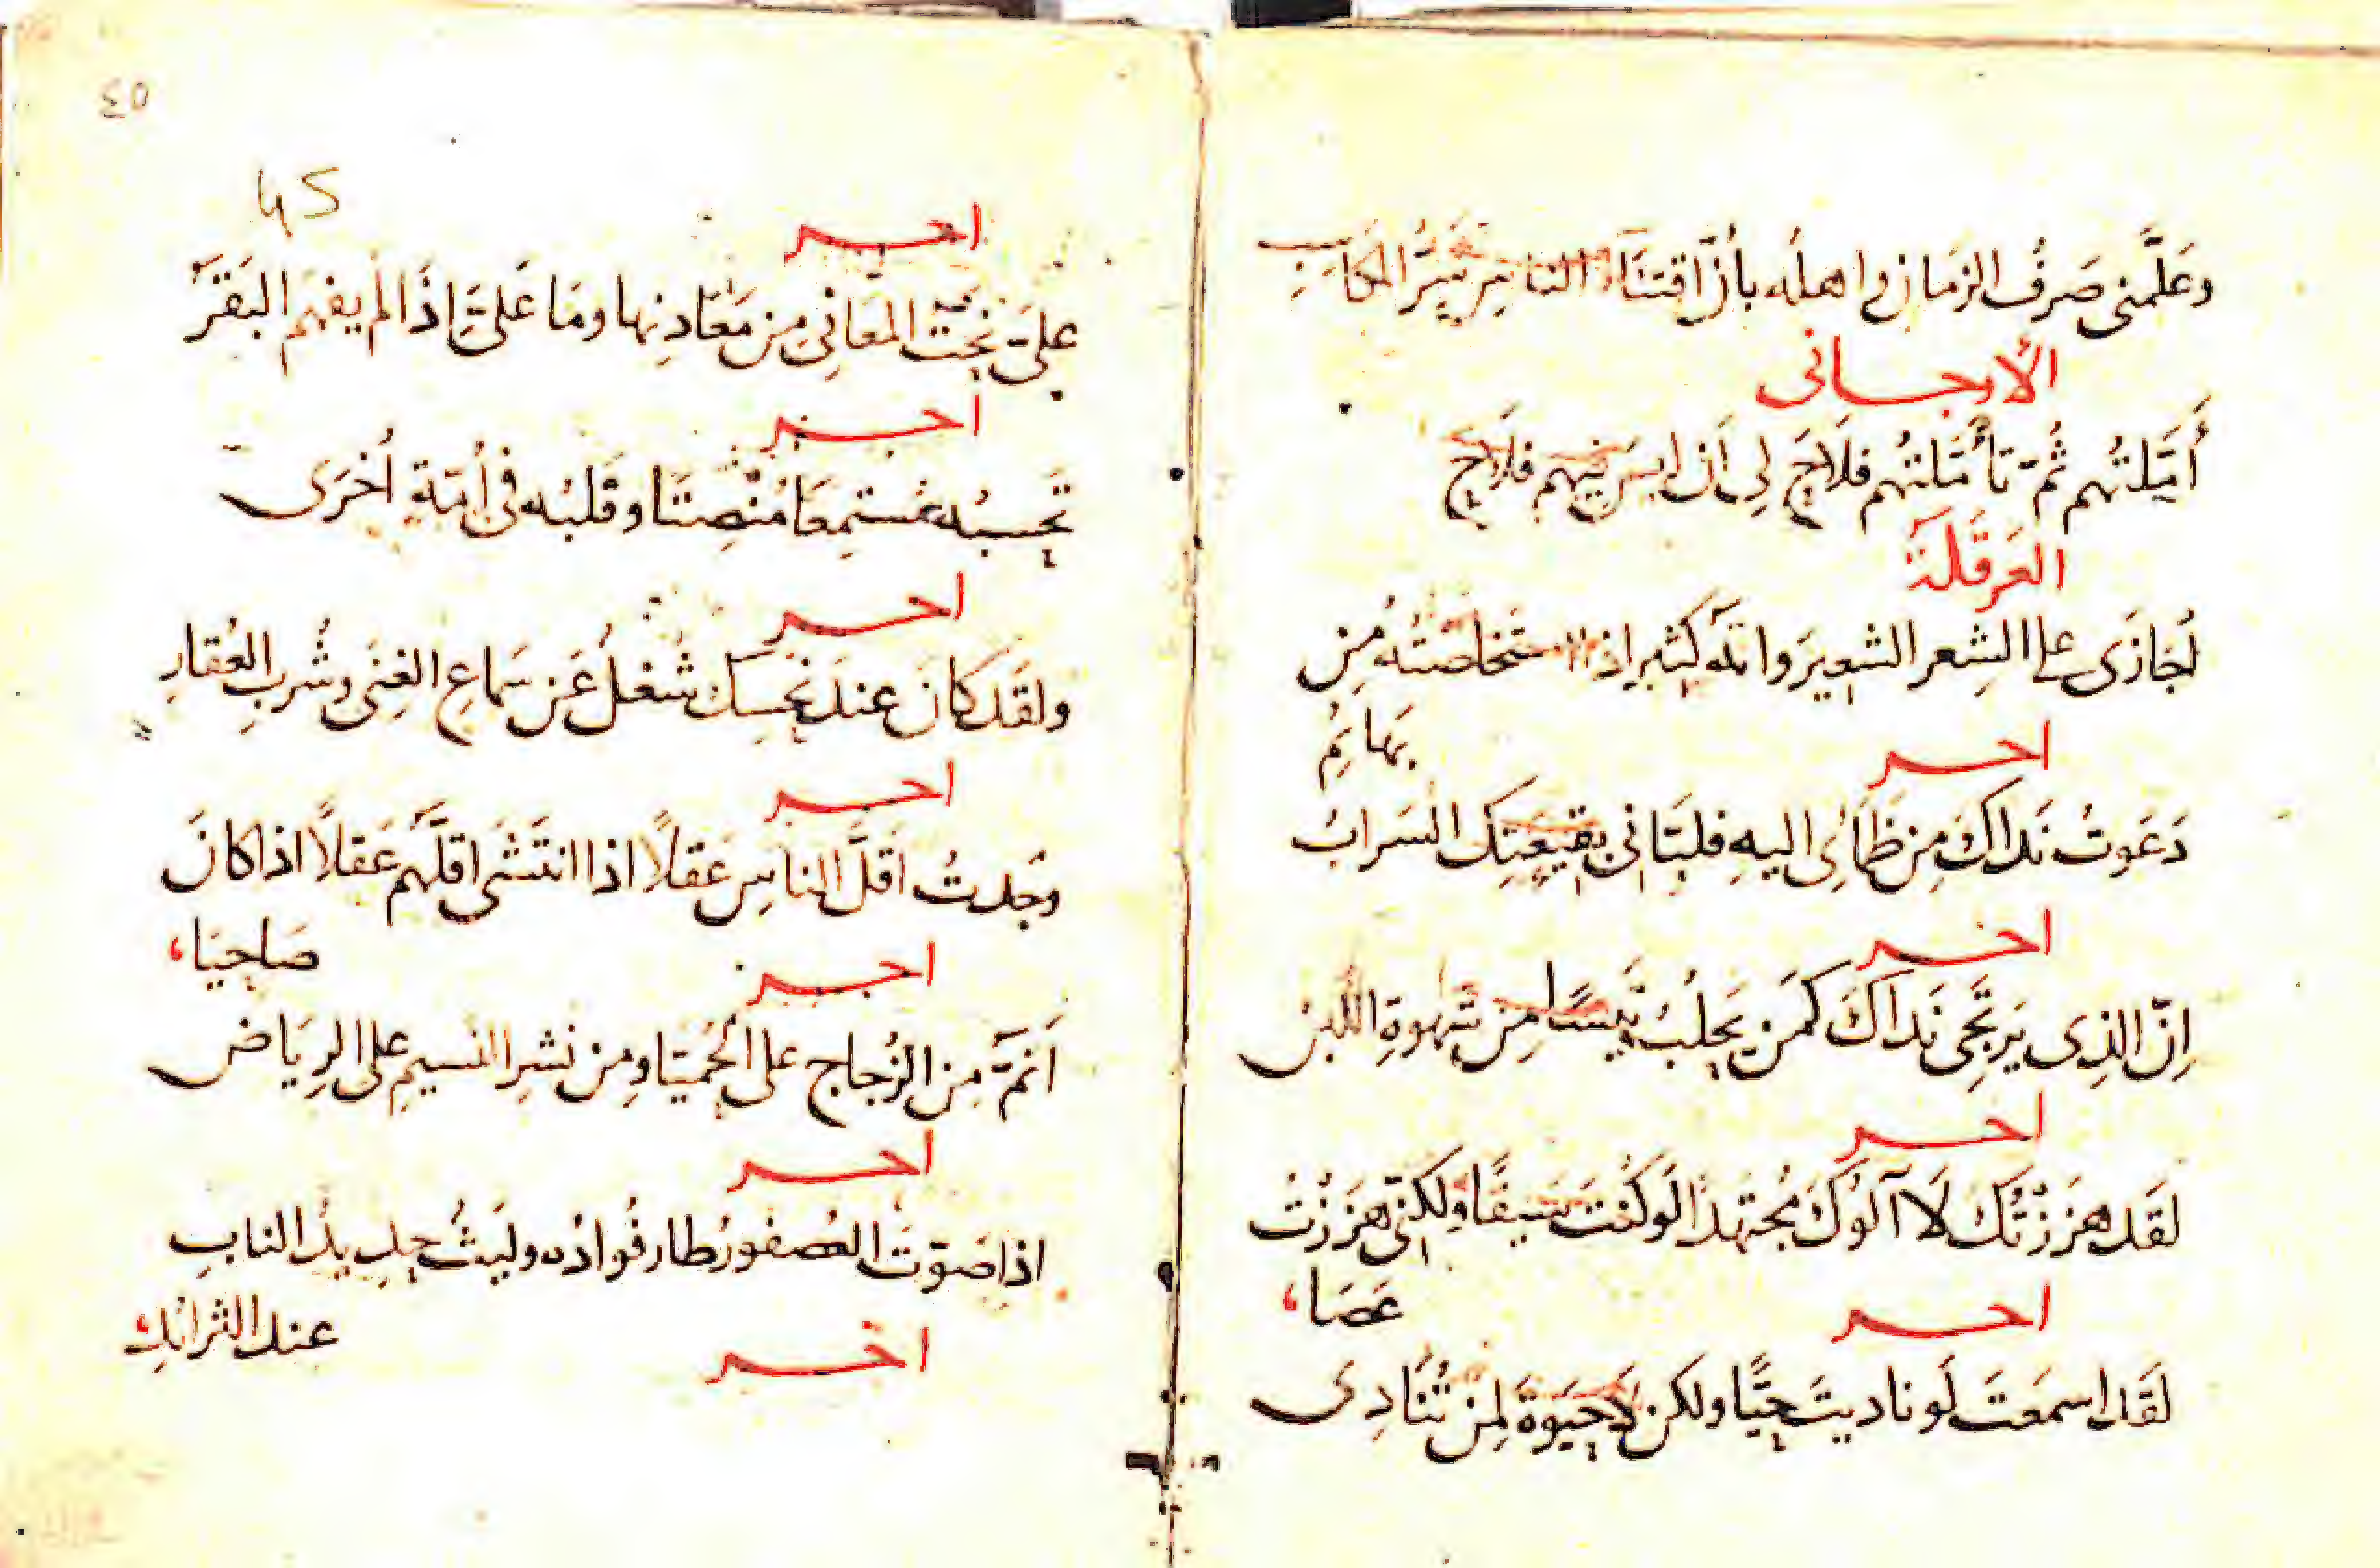 وعَلَّمني صَرفُ الزمَانِ واهلُه بأنَّ اقتنَاءَ الناسِ شَرُّ المكاسِبِ
الأرجاني
أَمَّلتُهم ثُمّ تَأَمَّلتُهم فلاحَ لِي أَن ليسَ فيهم فلاح
العَرقَلَة
نُجازَى على الشِعر الشعِيرَ وانّه كثير اذا استخلصتَه مِن
بَهائمُ
اخر
دَعَوتُ نَدَاكَ مِن ظَمَائي اليهِ فلبّاني بقيعَتِك السَرابُ
اخر
اِنّ الذِى يَرتَجِى نَدَاكَ كَمَن يَحلبُ تَيسًا مِن شَهوةِ اللبن
اخر
لقَد هَزَزتُك لا آلُوكَ مُجتهَدًا لَوكنتَ سَيفًا ولكنّي هَزَزتُ
عَصَا،
اخر
لَقَد اسمَعتَ لَو ناديتَ حيًّا ولكن لا حيَوةَ لِمَن تُنَادِى
٤٥
45
اخر
عليَّ نحتُ المعَانِي مِن مَعَادِنِها ومَا عَليَّ إِذَا لم يفهَم البَقَرُ
اخر
تَحسبُه مُستمِعًا مُنْصِتًا وقَلبُه في أُمّةٍ اُخرَى
اخر
ولقَد كانَ عندَ نحسِك شُغلٌ عَن سَماعِ الغِنَى وشُربِ العُقارِ
اخر
وجَدتُ اقَلَّ الناسِ عَقلاً اذا انتَشَى اقلَّهم عَقلاً اذا كانَ
صَاحِيَا،
اخر
اَنَمّ مِن الزُجاجِ على الحُمَيّا ومِن نَشرِ النسيمِ على الرِيَاض
اخر
اذا صَوّتَ العُصفورُ طار فُوادُه ولَيثٌ حدِيدُ النابِ
عند الثرائدِ
اخر